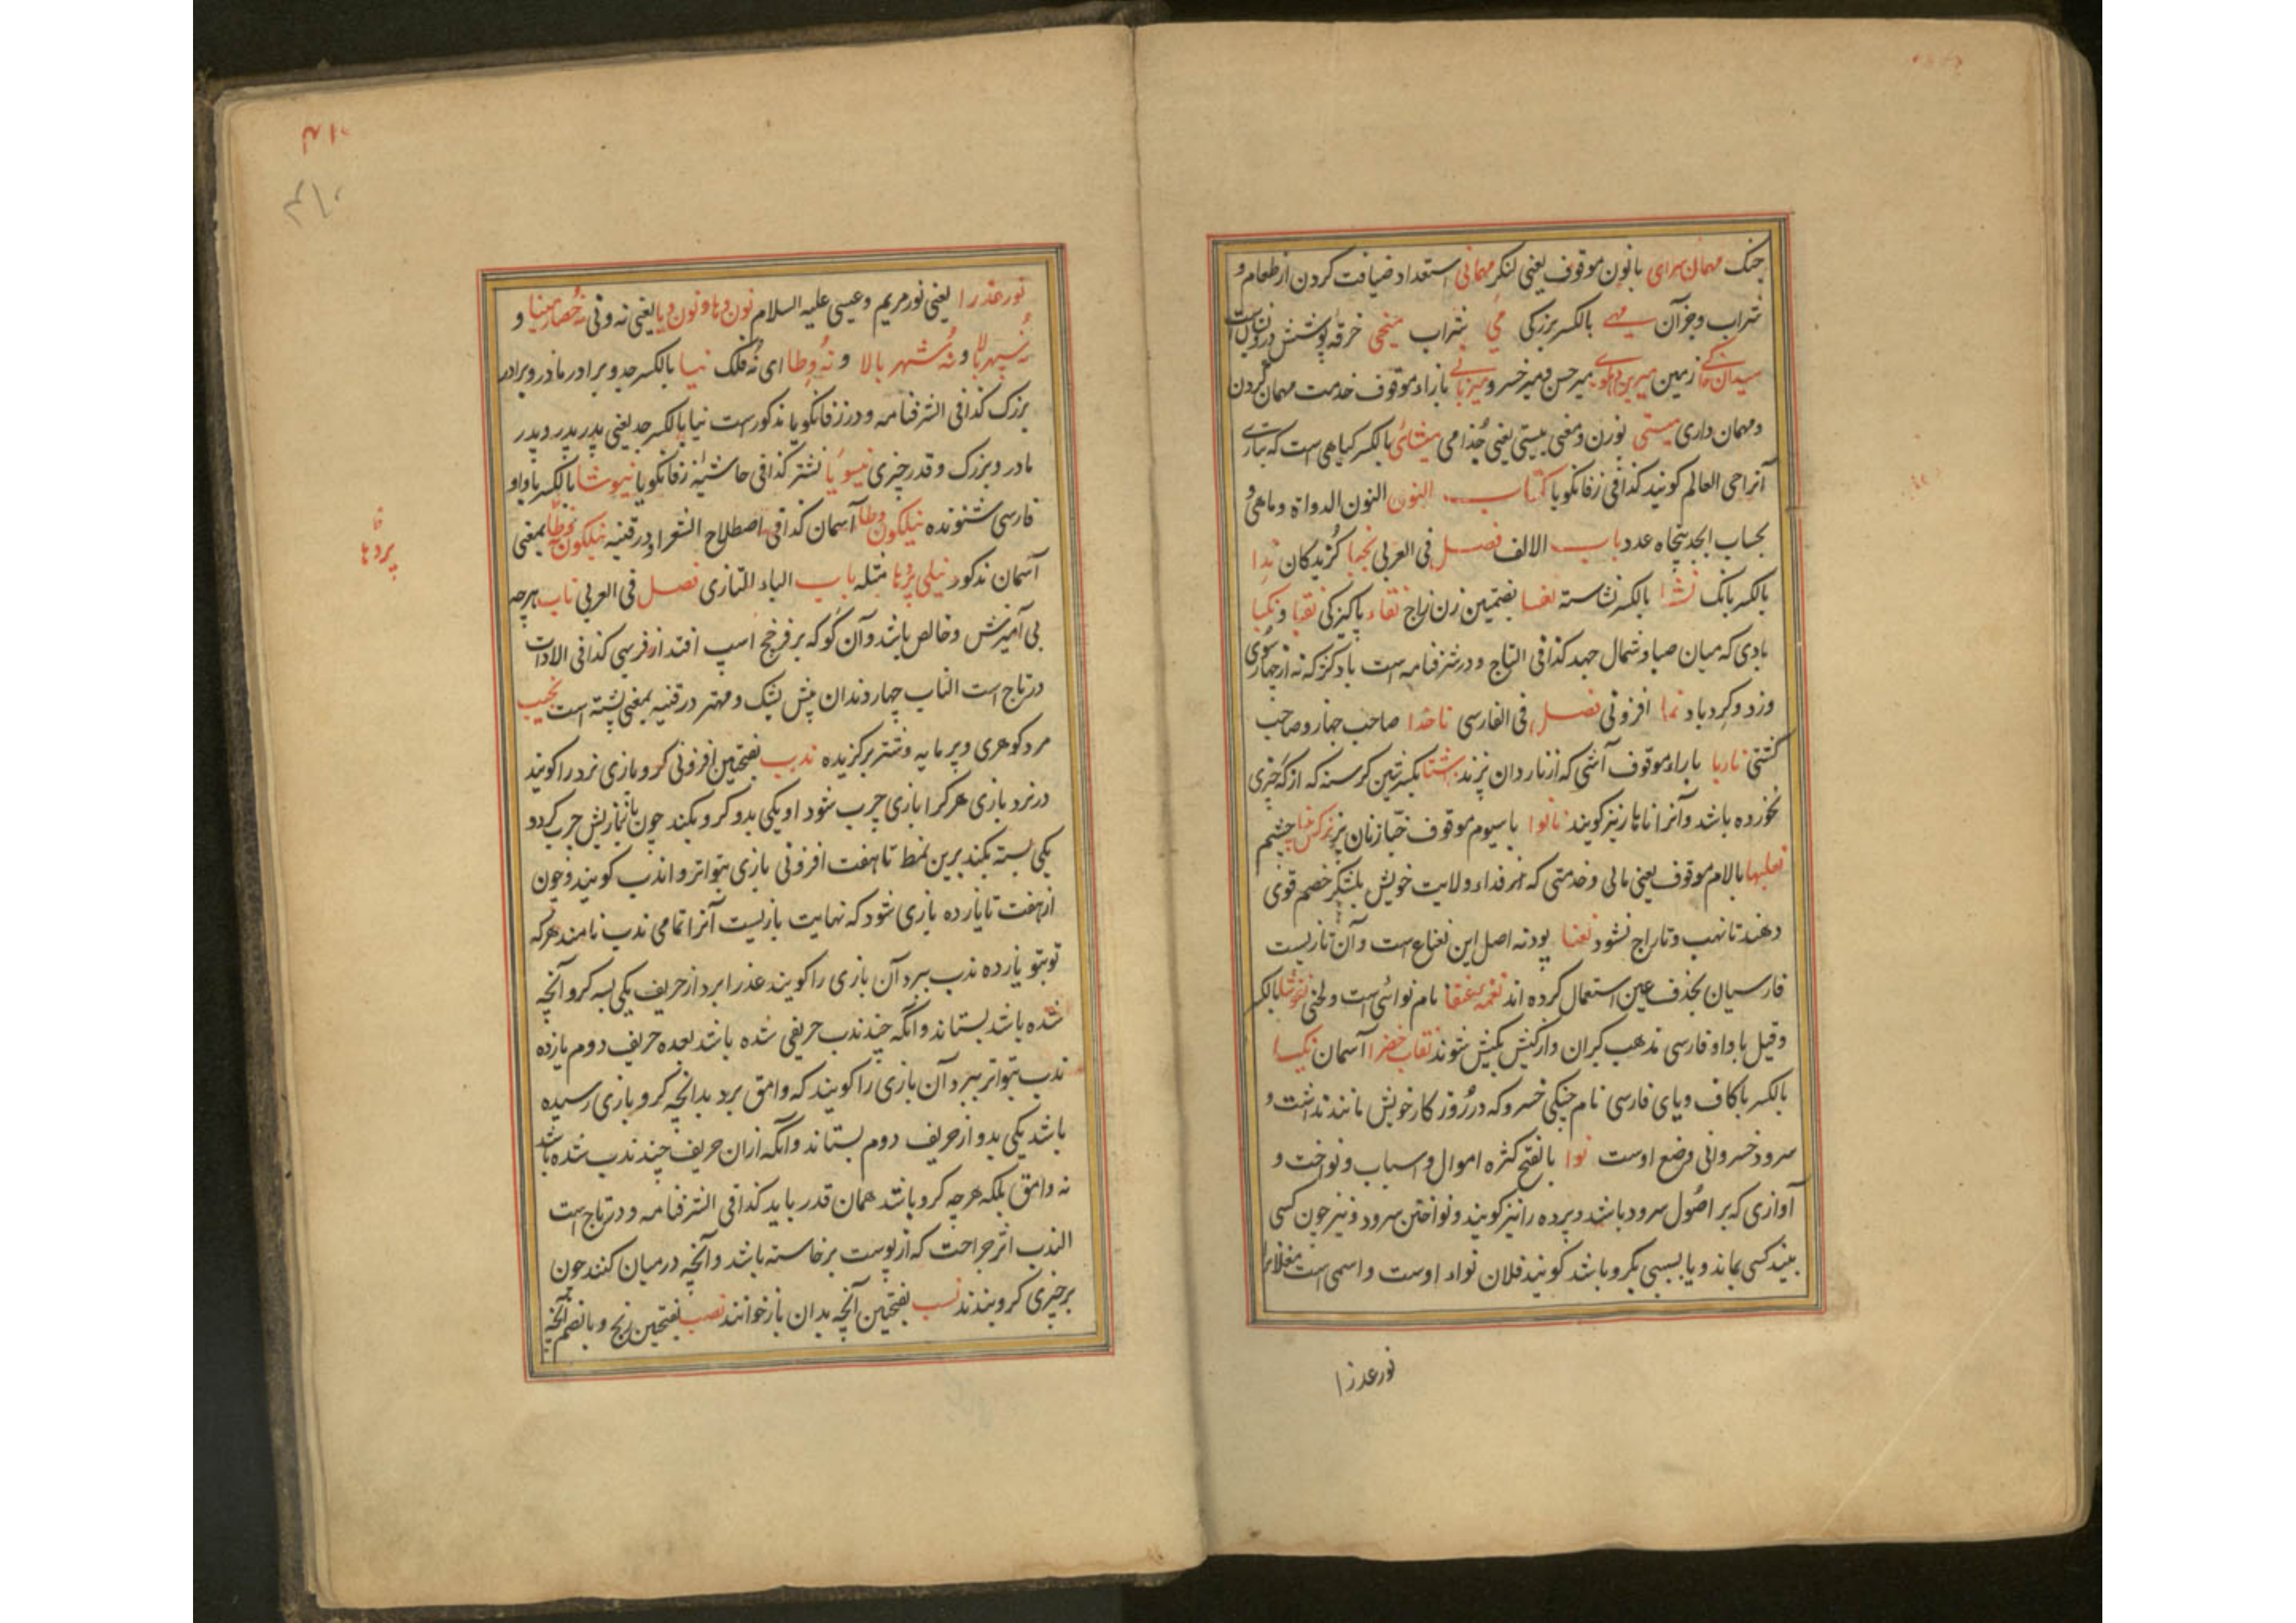 جنک مهمان سرای بانون موقوف یعنی لنکر مهمانی استعداد ضیافت کردن از طعام و
شراب و جز آن مهی بالکسر بزرکی می شراب میخی خرقه پوشش درویشان است
زمین میرین دهلوی میر حسن و میر خسرو میزبانی بازاء موقوف خدمت مهمان کردن
و مهمان داری میستی بوزن و معنی بیستی یعنی جذامی میشائی بالکسر کیاهی است که بتازی
آنرا حی العالم کویند کذا فی زفانکویا کتاب النون النون الدواة و ماهی و
بحساب ابجد پنجاه عدد باب الالف فصل فی العربی نجبا کزیدکان ندا
بالکسر بانک نشا بالکسر نشاسته نفسا بضمتین زن زاج نقاء پاکیزکی نقبا و نکبا
بادی که میان صبا و شمال جهد کذا فی التاج و در شرفنامه است باد کژ که نه از چهار سوی
وزد و کردباد نما افزونی فصل فی الفارسی ناخدا صاحب جهاز و صاحب
کشتی ناربا باراء موقوف آشی که از ناردان پزند ناشتا بکسرتین کرسنه که از که چیزی
نخورده باشد و آنرا ناهار نیز کویند نانوا باسیوم موقوف خباز نان پز نرکس چشم
نعلبها بالام موقوف یعنی مالی و خدمتی که از فداء ولایت خویش بلشکر خصم قوی
دهند تا نهب و تاراج نشود نعنا پودنه اصل این نعناع است و آن تازیست
فارسیان بحذف عین استعمال کرده اند نغمه عنقا نام نوائی است و لحنی نغوشا بالکسر
و قیل با واو فارسی مذهب کبران و از کیش بکیش شوند نقاب خضرا آسمان نکیسا
بالکسر باکاف و یای فارسی نام چنکی خسرو که در روزکار خویش مانند نداشت و
سرود خسروانی وضع اوست نوا بالفتح کثره اموال و اسباب و نواخت و
آوازی که بر اصول سرود باشد و پرده را نیز کویند و نواختن سرود و نیز چون کسی
ببند کسی بماند و یا بسببی بکرو باشد کویند فلان نواء اوست و اسمی است مغلانرا
نور عذرا
۴۱۰
۴۱۰
نور عذرا یعنی نور مریم و عیسی علیه السلام نون دها و نون و یا یعنی نه و نی نه حصار مینا و
نه سپهر بالا و نه شهر بالا و نه وطا ای نه فلک نیا بالکسر جد و برادر مادر و برادر
بزرک کذا فی الشرفنامه و در زفانکویا مذکور است نیا بالکسر جد یعنی پدر پدر و پدر
مادر و بزرک و قدر چیزی نیسویا نشتر کذا فی حاشیه زفانکویا نیوشا بالکسر با واو
فارسی شنونده نیلکون وطا آسمان کذا فی اصطلاح الشعراء و در قنیه نیلکون بمعنی
آسمان مذکور نیلی پردها مثله باب الباء التازی فصل فی العربی ناب هرچه
بی آمیزش و خالص باشد و آن کوکه بر فرخج اسپ افتد از فربهی کذا فی الادات
در تاج است الناب چهار دندان پیش نیشک و مهتر در قنیه بمعنی پشته است نجیب
مرد کوهری و پرمایه و شتر برکزیده ندب بفتحتین افزونی کرو بازی نرد را کویند
در نرد بازی هر کرا بازی چرب شود او یکی بدو کرو بکند چون باز بازیش چرب کردد
یکی بسته بکند برین نمط تا هفت افزونی بازی بتواتر و اندب کویند و چون
از هفت تا یازده بازی شود که نهایت بازیست آنرا تمامی ندب نامند هر که
تو بتو یازده ندب ببرد آن بازی را کویند عذرا برد از حریف یکی بسه کرو آنچه
شده باشد بستاند و آنکه چند ندب حریفی شده باشد بعده حریف دوم یازده
ندب بتواتر ببرد آن بازی را کویند که وامق برد بدانچه کرو بازی رسیده
باشد یکی بدو از حریف دوم بستاند و آنکه ازان حریف چند ندب شده باشد
نه وامق بلکه هرچه کرو باشد همان قدر باید کذا فی الشرفنامه و در تاج است
الندب اثر جراحت که از پوست برخاسته باشد و آنچه در میان کنند چون
بر چیزی کرو بندند نسب بفتحتین آنچه بدان بازخوانند نصب بفتحتین رنج و بالضم آنچه
پردها